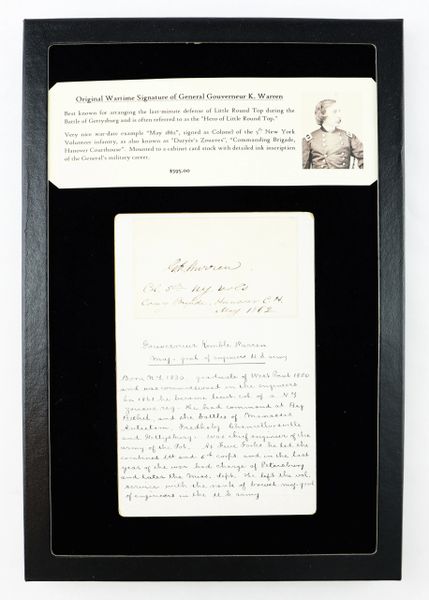 Original Wartime Signature of General Gouverneur K. Warren
Best known for arranging the last-minute defense of Little Round Top during the
Battle of Gettysburg and is often referred to as the "Hero of Little Round Top."
Very nice war-date example "May 1862", signed as Colonel of the 5th New York
Volunteer infantry, as also known as "Duryée's Zouaves", "Commanding Brigade,
Hanover Courthouse". Mounted to a cabinet card stock with detailed ink inscription
of the General's military career.
$595.00
G K Warren
Col 5th NY Vols
Comg Brigade, Hanover C.H.
May 1862
Gouverneur Kemble Warren
Maj. genl of engineers U.S. army
Born N.Y. 1830 graduate of West Point 1850
and was commissioned in the engineers
In 1861 he became lieut. col of a N.Y.
zouave reg. He had command at Big
Bethel, and the battles of Manassas
Antietam, Fredbg Chancellorsville
and Gettysburg. Was chief engineer of the
army of the Pot. At Five Forks he led the
combined 2d and 6th corps, and in the last
year of the war had charge of Petersburg
and later the Miss. dept. He left the vol.
service with the rank of brevet maj. genl
of engineers in the U.S. army